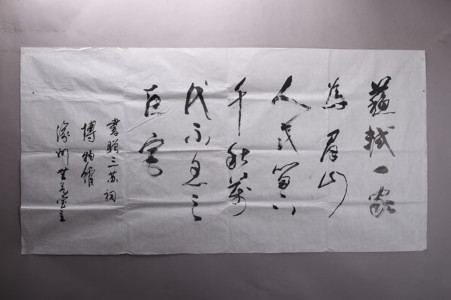 蘇軾一家
為眉山
人民留下
千秋萬
代不息之
巨
書贈三苏祠
博物馆